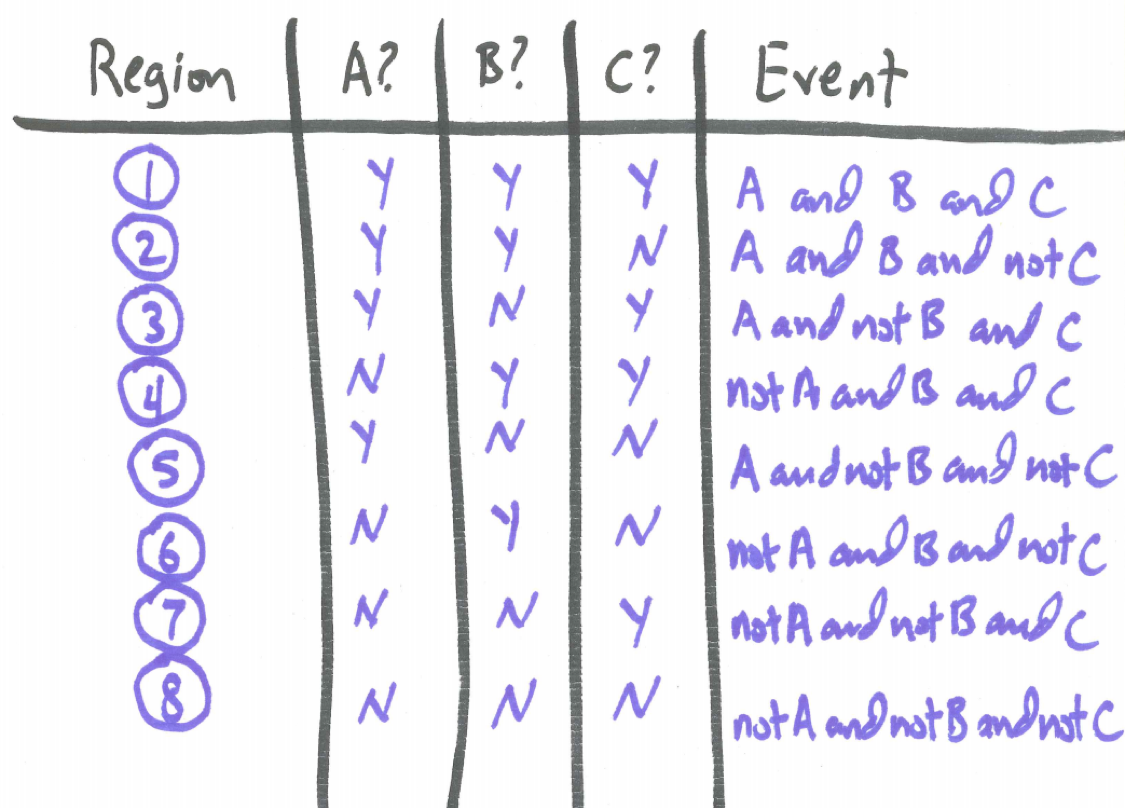 Region A? B? C? Event
1 Y Y Y A and B and C
2 Y Y N A and B and not C
3 Y N Y A and not B and C
4 N Y Y not A and B and C
5 Y N N A and not B and not C
6 N Y N not A and B and not C
7 N N Y not A and not B and C
8 N N N not A and not B and not C